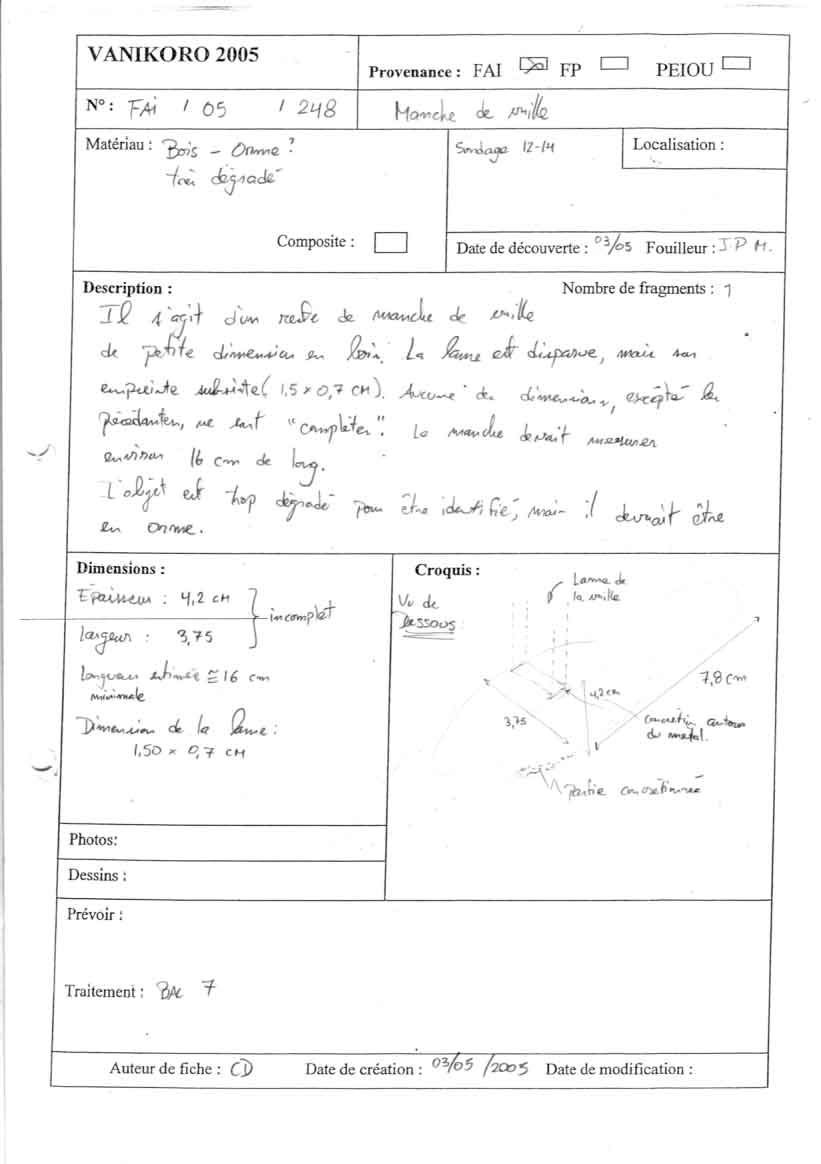 VANIKORO 2005
Provenance : FAI FP PEIOU
N° : FAi / 05 / 248
Manche de vrille
Matériau : Bois - Orme ?
très dégradé
Composite :
Sondage 12-14
Localisation :
Date de découverte : 03/05 Fouilleur : J.P M.
Description :
Nombre de fragments : 1
Il s'agit d'un reste de manche de vrille
de petite dimension en bois. La lame est disparue, mais son
empreinte subsiste (1,5 x 0,7 CM). Aucune des dimensions, excepté les
précédantes, ne sont "complètes". Le manche devait mesurer
environ 16 cm de long.
L'objet est trop dégradé pour être identifié, mais il devrait être
en orme.
Dimensions :
Epaisseur : 4,2 cm
largeur : 3,75
incomplet
Longueur estimée ≅ 16 cm
minimale
Dimension de la lame :
1,50 x 0,7 CM
Croquis :
Vu de
Dessous
Lame de
la vrille
7,8 cm
4,2 cm
3,75
Concrétion autour
du métal.
Partie concrétionnée
Photos:
Dessins :
Prévoir :
Traitement : BAC 7
Auteur de fiche : CD Date de création : 03/05 /2005 Date de modification :